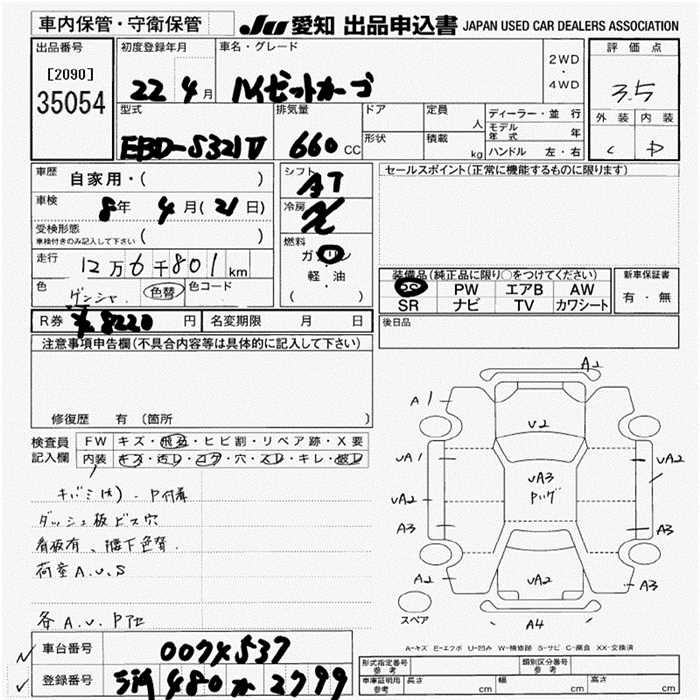 車内保管・守衛保管
JU 愛知 出品申込書 JAPAN USED CAR DEALERS ASSOCIATION
出品番号
[2090]
35054
初度登録年月
22 4月
車名・グレード
ハイゼットカーゴ
2WD
・
4WD
評価点
3.5
外装 内装
C D
型式
EBD-S321V
排気量
660 CC
ドア
形状
定員
人
積載
kg
ディーラー・並行
モデル年式 年
ハンドル 左・右
車歴
自家用・( )
車検
8年 4月(21日)
受検形態
車検付きのみ記入して下さい ( )
走行
12万6千801km
色
ゲンシャ 色替 色コード
シフト
AT
冷房
燃料
ガソリン
軽・油
( )
セールスポイント(正常に機能するものに限ります)
装備品(純正品に限り○をつけてください)
PS PW エアB AW
SR ナビ TV カワシート
新車保証書
有・無
R券 ¥8220円
名変期限 月 日
後日品
注意事項申告欄(不具合内容等は具体的に記入して下さい)
修復歴 有 (箇所 )
検査員
記入欄
FW キズ・飛石・ヒビ割・リペア跡・X要
内装 キズ・汚レ・コゲ・穴・スレ・キレ・破レ
キバミ(大)・P付着
ダッシュ板ビス穴
看板有、陸下色替
荷室A.U.S
各A.U.P他
A1
A1
U2
UA1
UA2
UA3
Pハゲ
UA2
A3
A3
A2
UA2
A3
A4
スペア
A-キズ E-エクボ U-凹み W-補修跡 S-サビ C-腐食 XX-交換済
車台番号
0074537
登録番号
480 か 2799
形式指定番号
参考
類別区分番号
参考
車庫証明用
参考
長さ cm
幅 cm
高さ cm